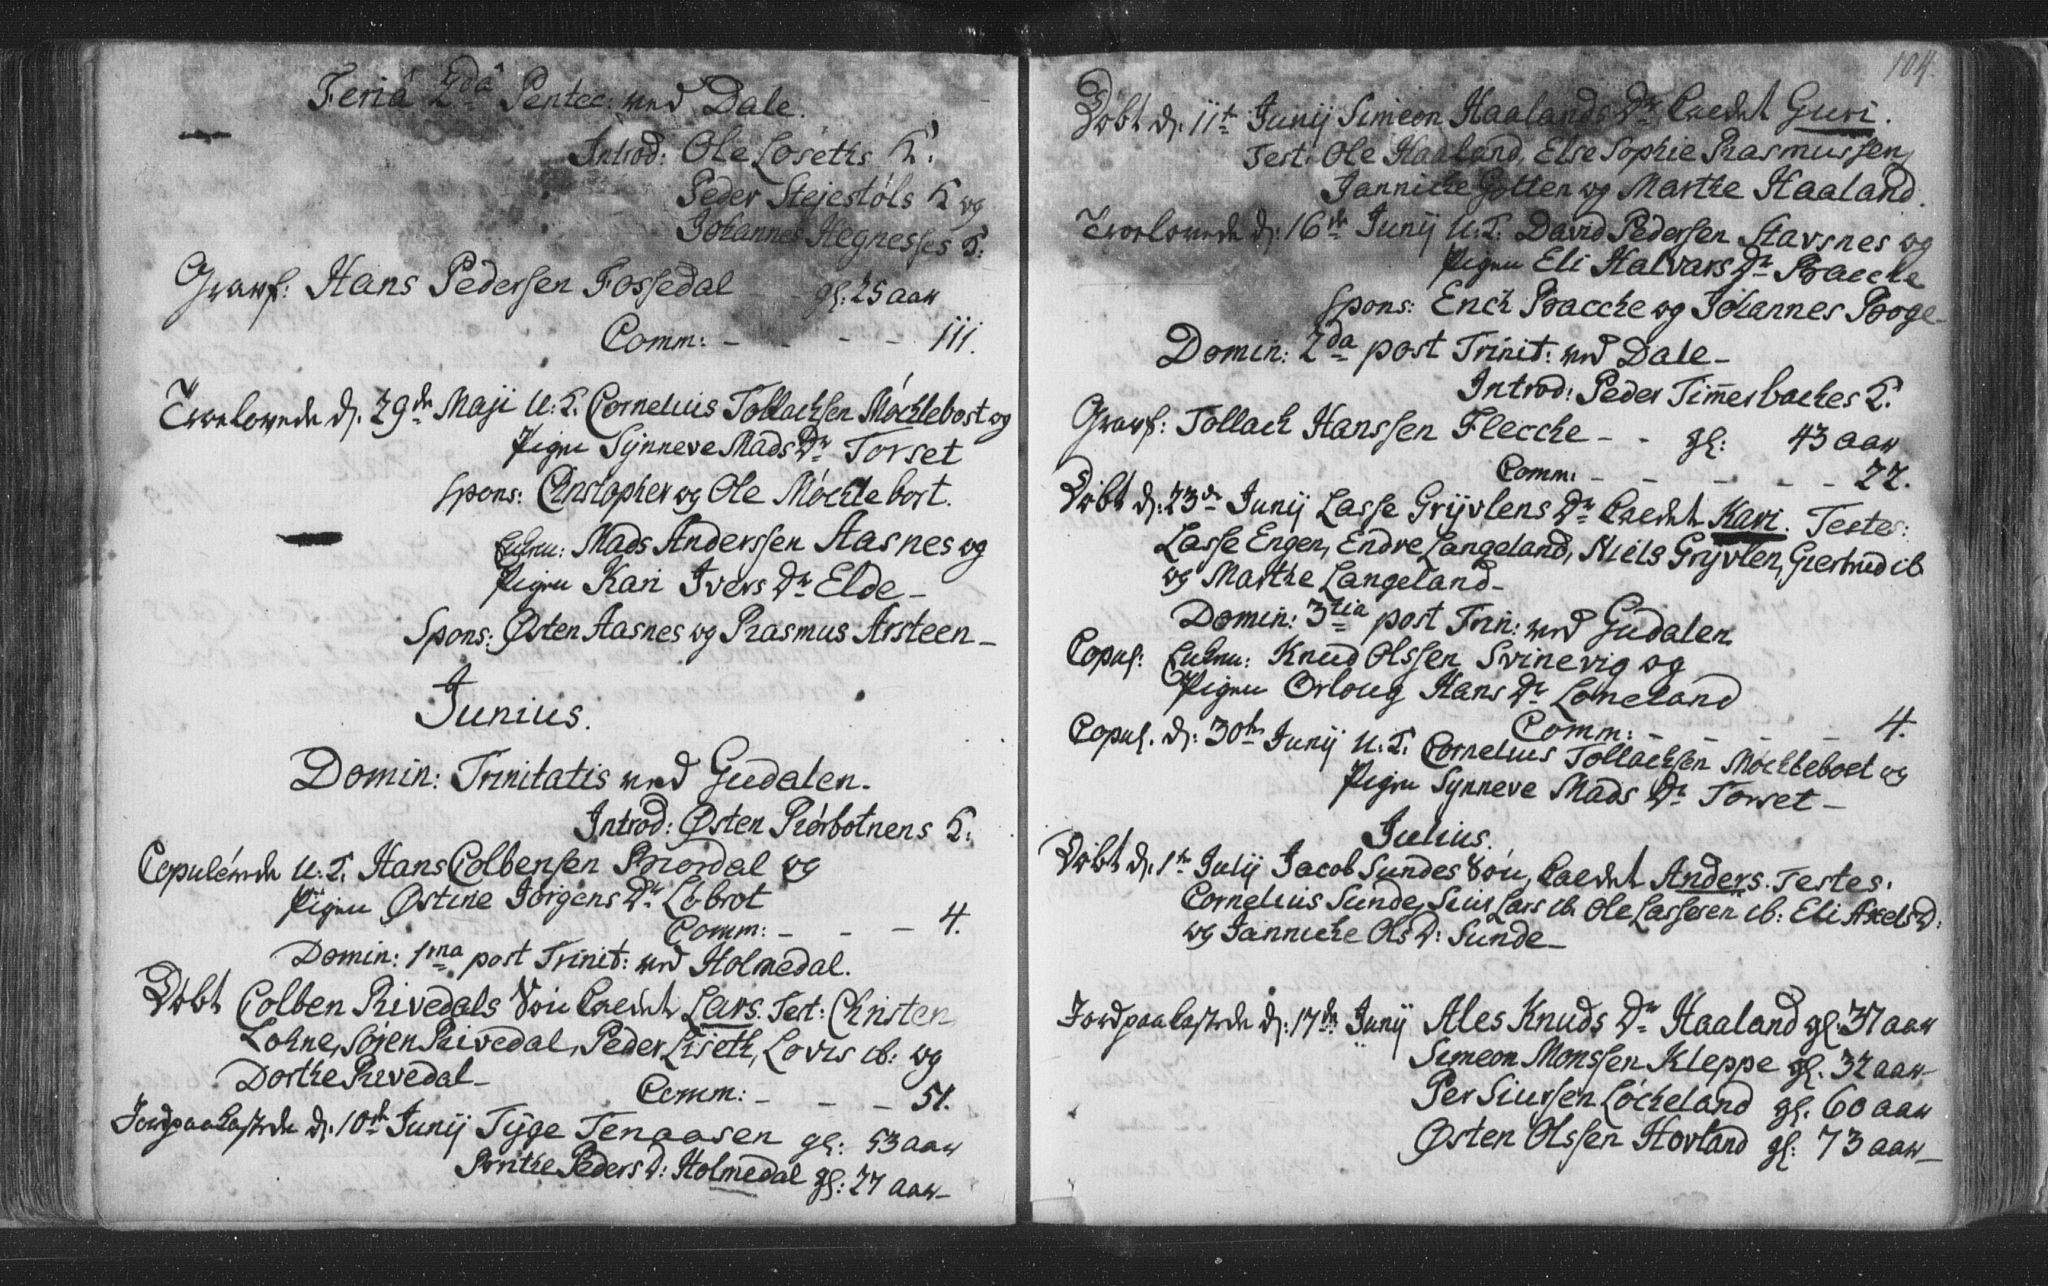 Feriâ 2dâ Pentec: ved Dale.
Introd: Ole Løseths K:
Peder Stejestøls K og
Johannes Hegnesses K:
Gravf: Hans Pedersen Fossedal - - gl: 25 aar
Comm: - - - - 111.
Trolovede d. 29de Maji U. K. Cornelius Tollachsen Møchlebost og
Pigen Synneve Mads Dr Torset
Spons: Christopher og Ole Møchlebost.
Enkem: Mads Anderssen Aasnes og
Pigen Kari Ivers Dr Elde -
Spons: Østen Aasnes og Rasmus Arsteen -
Junius.
Domin: Trinitatis ved Gudalen.
Introd: Østen Rørbotnens K:
Copulerede U. K. Hans Colbensen Nordal og
Pigen Østine Jørgens Dr Løbrot
Comm: - - - 4.
Domin: 1ma post Trinit: ved Holmedal.
Døbt Colben Rivedals Søn kaldet Lars. Test: Christen
Lohne, Søjen Rivedal, Peder Liseth, Lovis ib: og
Dorthe Rivedal -
Comm: - - - 51.
Jordpaakastede d: 10de Junij Tyge Tenaasen gl: 53 aar
Brithe Peders D: Holmedal gl: 27 aar -
104.
Døbt d. 11te Junij Simeon Haalands Dr kaldet Guri.
Test: Ole Haaland, Else Sophie Rasmussen,
Jannicke Gotten og Marthe Haaland.
Trolovede d: 16de Junij U. K. David Pedersen Stavsnes og
Pigen Eli Halvars Dr Bracke
Spons: Erich Bracche og Johannes Boge -
Domin: 2da post Trinit: ved Dale -
Introd: Peder Tim̅erbackes K:
Gravf: Tollach Hanssen Flecche - - gl: 43 aar
Comm: - - - - - 22.
Døbt d: 23de Junij Lasse Gryvlens Dr kaldet Kari. Testes:
Lasse Engen, Endre Langeland, Niels Gryvlen, Giertrud ib
og Marthe Langeland -
Domin: 3tia post Trin: ved Gudalen
Copul: Enkem: Knud Olssen Svinevig og
Pigen Orloug Hans Dr Loneland
Comm: - - - - 4.
Copul. d: 30te Junij U. K. Cornelius Tollachsen Møchlebost og
Pigen Synneve Mads Dr Torset -
Julius.
Døbt d. 1te Julij Jacob Sundes Søn, kaldet Anders. Testes.
Cornelius Sunde, Siur Lars ib. Ole Lassesen ib: Eli Axels D:
og Jannicke Ols D: Sunde -
Jordpaakastede d: 17de Junij Ales Knuds Dr Haaland gl: 37 aar
Simeon Monssen Kleppe gl. 32 aar
Per Siursen Løcheland gl. 60 aar
Østen Olssen Hovland gl: 73 aar -